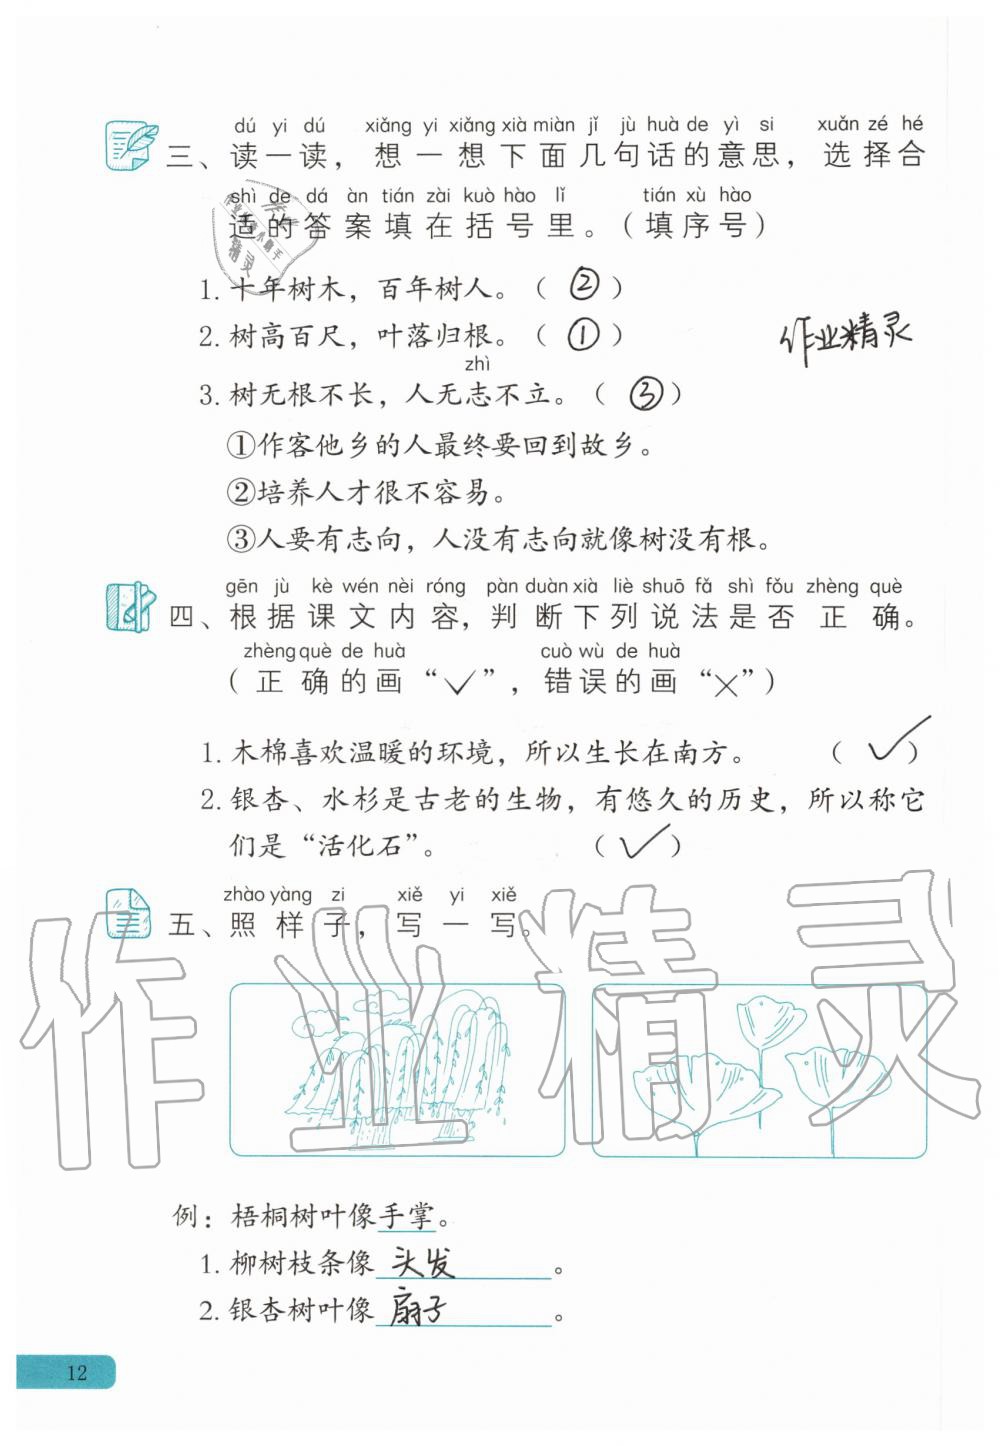 dú yi dú xiǎng yi xiǎng xià miàn jǐ jù huà de yì si xuǎn zé hé
三、读一读，想一想下面几句话的意思，选择合
shì de dá àn tián zài kuò hào lǐ tián xù hào
适的答案填在括号里。（填序号）
1. 十年树木，百年树人。（ ② ）
2. 树高百尺，叶落归根。（ ① ）
作业精灵
zhì
3. 树无根不长，人无志不立。（ ③ ）
①作客他乡的人最终要回到故乡。
②培养人才很不容易。
③人要有志向，人没有志向就像树没有根。
gēn jù kè wén nèi róng pàn duàn xià liè shuō fǎ shì fǒu zhèng què
四、根据课文内容，判断下列说法是否正确。
zhèng què de huà cuò wù de huà
（正确的画“✓”，错误的画“×”）
1. 木棉喜欢温暖的环境，所以生长在南方。（ ✓ ）
2. 银杏、水杉是古老的生物，有悠久的历史，所以称它
们是“活化石”。（ ✓ ）
zhào yàng zi xiě yi xiě
五、照样子，写一写。
作业精灵
例：梧桐树叶像手掌。
1. 柳树枝条像头发。
2. 银杏树叶像扇子。
12